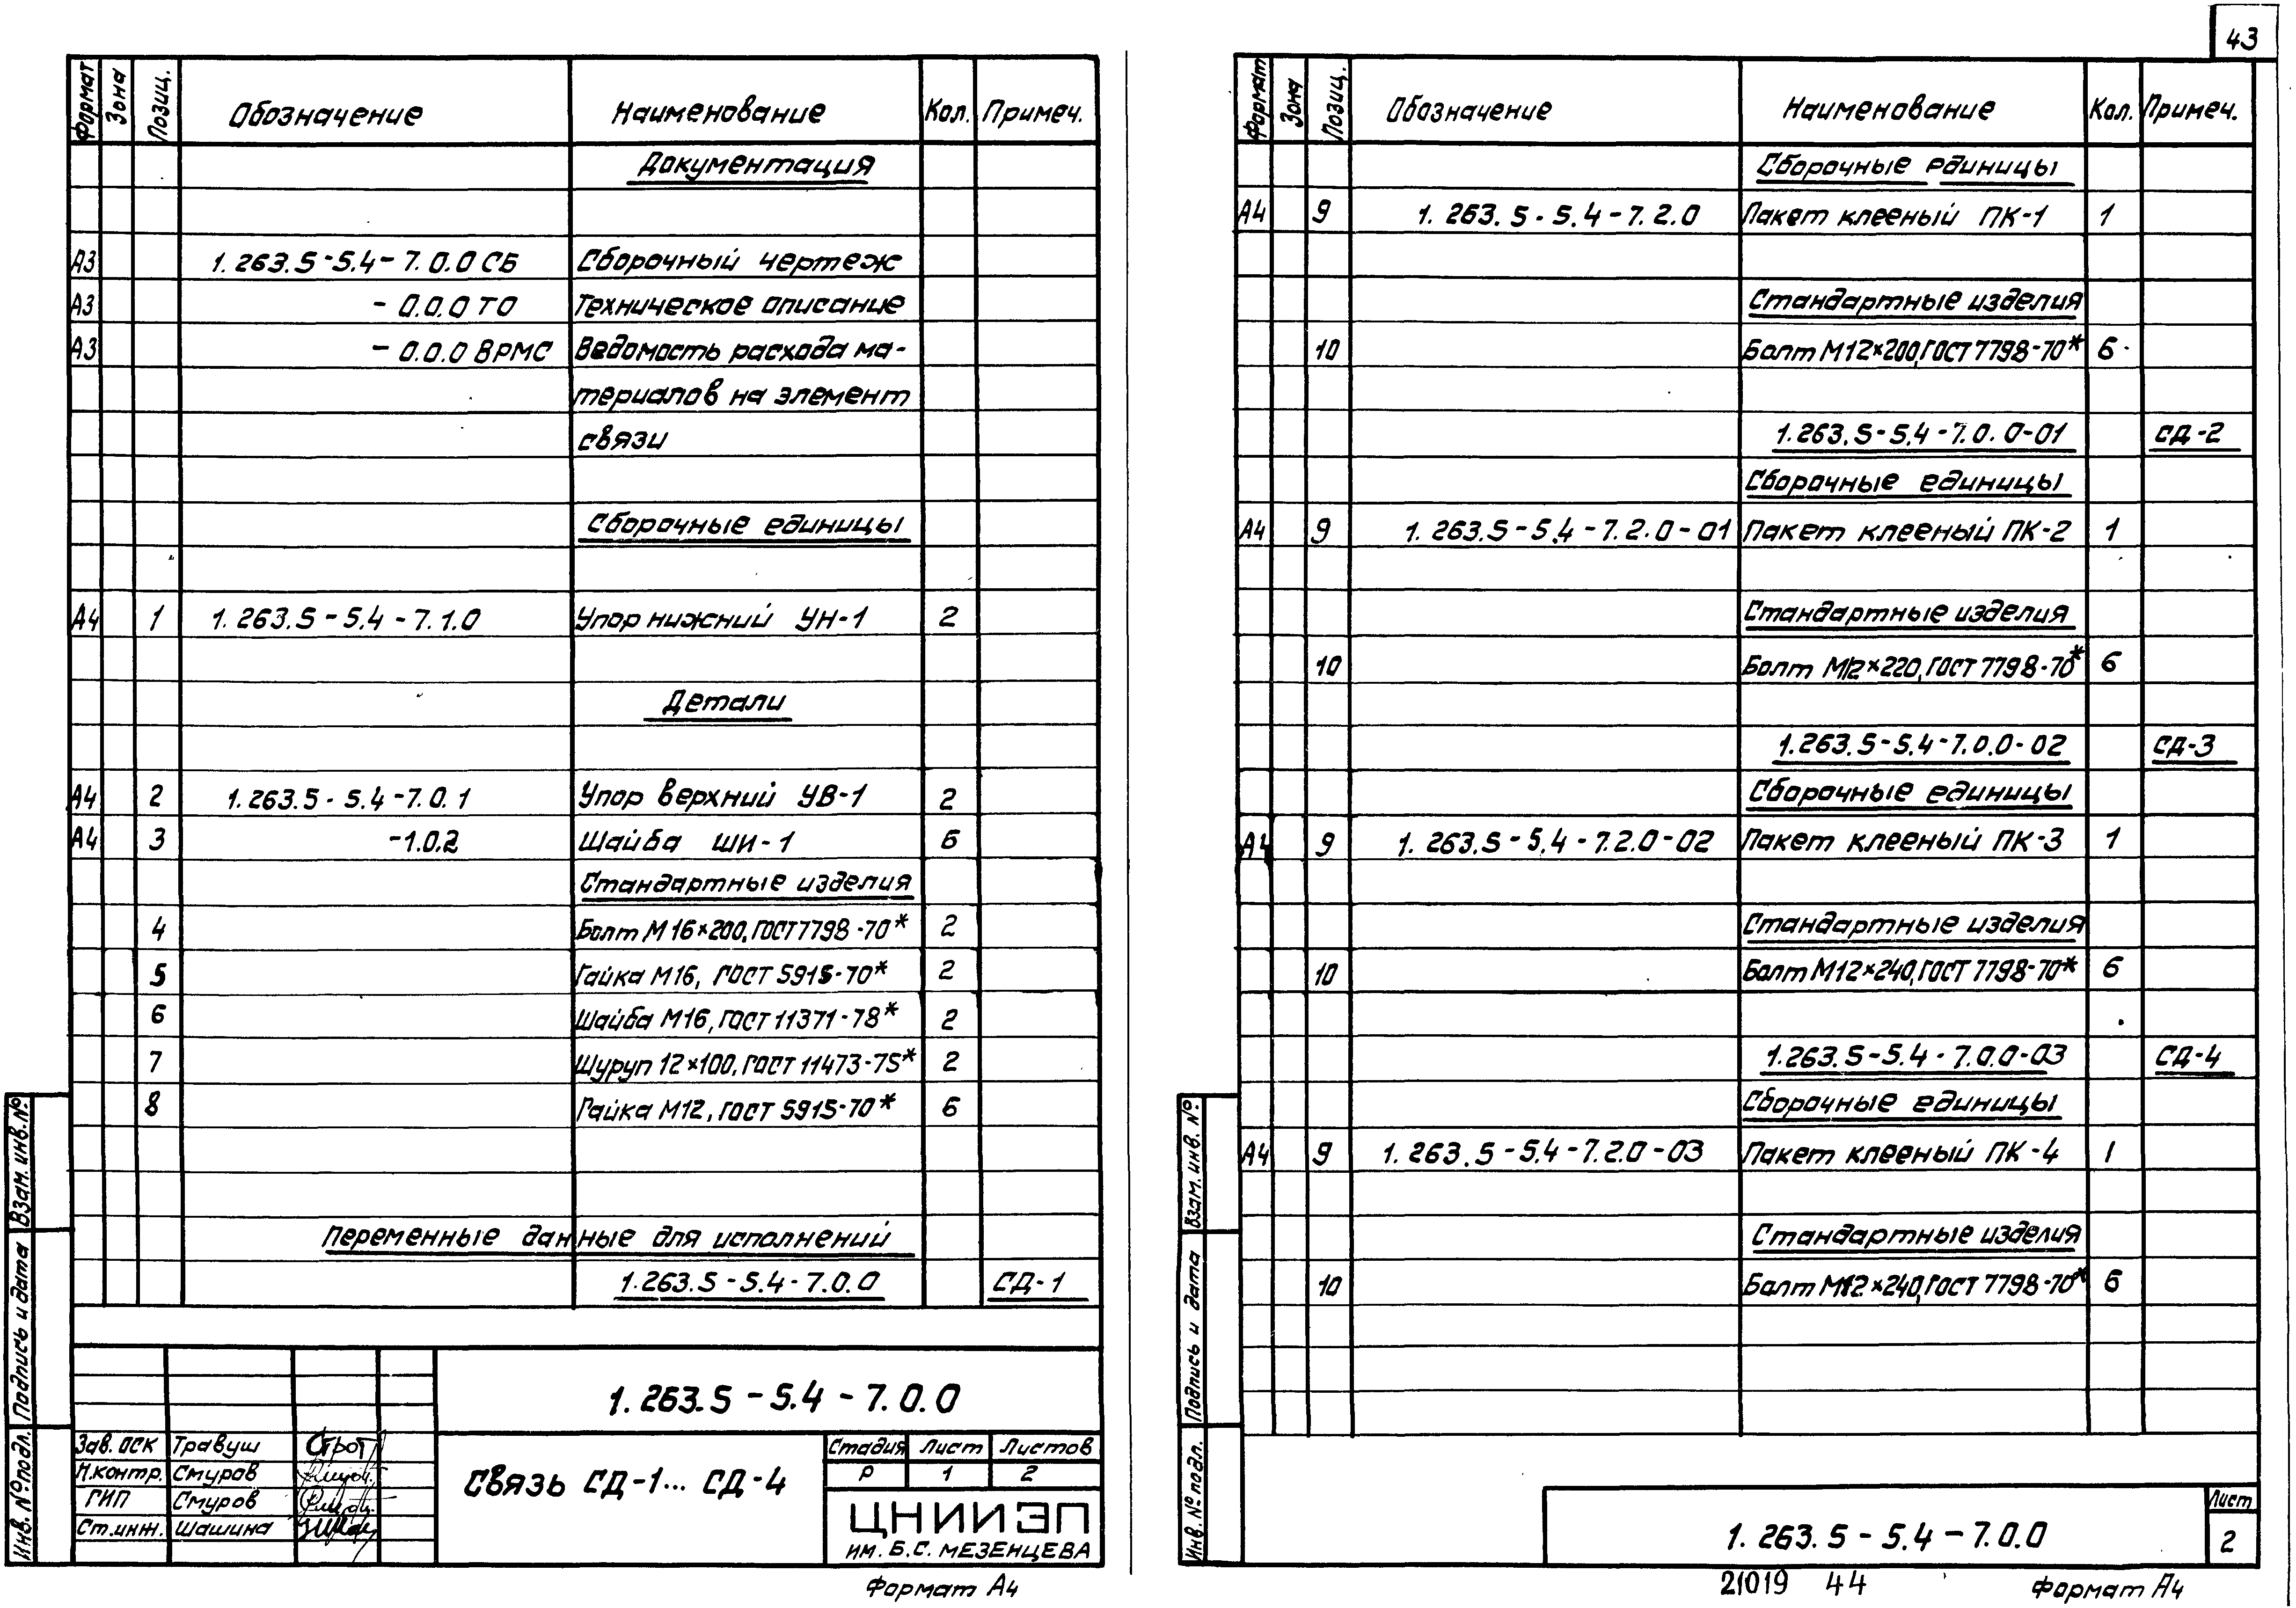 43
Формат Зона Позиц. Обозначение Наименование Кол. Примеч.
Документация
А3 1.263.5-5.4-7.0.0 СБ Сборочный чертеж
А3 -0.0.0 ТО Техническое описание
А3 -0.0.0 ВРМС Ведомость расхода ма-
териалов на элемент
связи
Сборочные единицы
А4 1 1.263.5-5.4-7.1.0 Упор нижний УН-1 2
Детали
А4 2 1.263.5-5.4-7.0.1 Упор верхний УВ-1 2
А4 3 -1.0.2 Шайба ШИ-1 6
Стандартные изделия
4 Болт М16×200, ГОСТ 7798-70* 2
5 Гайка М16, ГОСТ 5915-70* 2
6 Шайба М16, ГОСТ 11371-78* 2
7 Шуруп 12×100, ГОСТ 11473-75* 2
8 Гайка М12, ГОСТ 5915-70* 6
Переменные данные для исполнений
1.263.5-5.4-7.0.0 СД-1
1.263.5-5.4-7.0.0
Зав. ОСК Травуш
Н.контр. Смуров
ГИП Смуров
Ст.инж. Шашина
Связь СД-1... СД-4
Стадия Лист Листов
Р 1 2
ЦНИИЭП
им. Б.С. МЕЗЕНЦЕВА
Формат А4
Инв. № подл. Подпись и дата Взам. инв. №
Формат Зона Позиц. Обозначение Наименование Кол. Примеч.
Сборочные единицы
А4 9 1.263.5-5.4-7.2.0 Пакет клееный ПК-1 1
Стандартные изделия
10 Болт М12×200, ГОСТ 7798-70* 6
1.263.5-5.4-7.0.0-01 СД-2
Сборочные единицы
А4 9 1.263.5-5.4-7.2.0-01 Пакет клееный ПК-2 1
Стандартные изделия
10 Болт М12×220, ГОСТ 7798-70* 6
1.263.5-5.4-7.0.0-02 СД-3
Сборочные единицы
А4 9 1.263.5-5.4-7.2.0-02 Пакет клееный ПК-3 1
Стандартные изделия
10 Болт М12×240, ГОСТ 7798-70* 6
1.263.5-5.4-7.0.0-03 СД-4
Сборочные единицы
А4 9 1.263.5-5.4-7.2.0-03 Пакет клееный ПК-4 1
Стандартные изделия
10 Болт М12×240, ГОСТ 7798-70* 6
Инв. № подл. Подпись и дата Взам. инв. №
1.263.5-5.4-7.0.0
Лист
2
21019 44
Формат А4